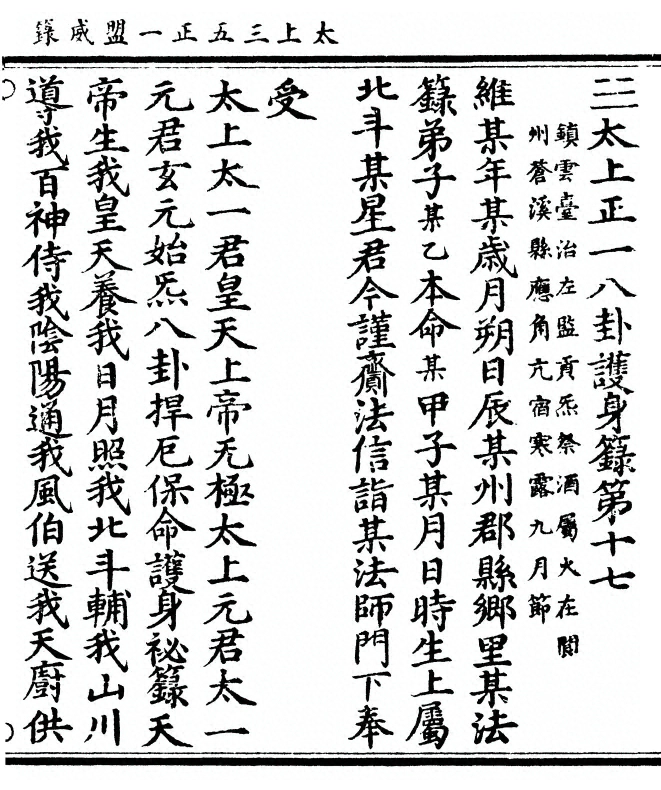 太上三五正一盟威籙
二二太上正一八卦護身籙第十七
鎮雲臺治左監貢炁祭酒屬火在閬
州蒼溪縣應角亢宿寒露九月節
維某年某歲月朔日辰某州郡縣鄉里某法
籙弟子某乙本命某甲子某月日時生上屬
北斗某星君今謹齎法信詣某法師門下奉
受
太上太一君皇天上帝无極太上元君太一
元君玄元始炁八卦捍厄保命護身祕籙天
帝生我皇天養我日月照我北斗輔我山川
導我百神侍我陰陽通我風伯送我天廚供